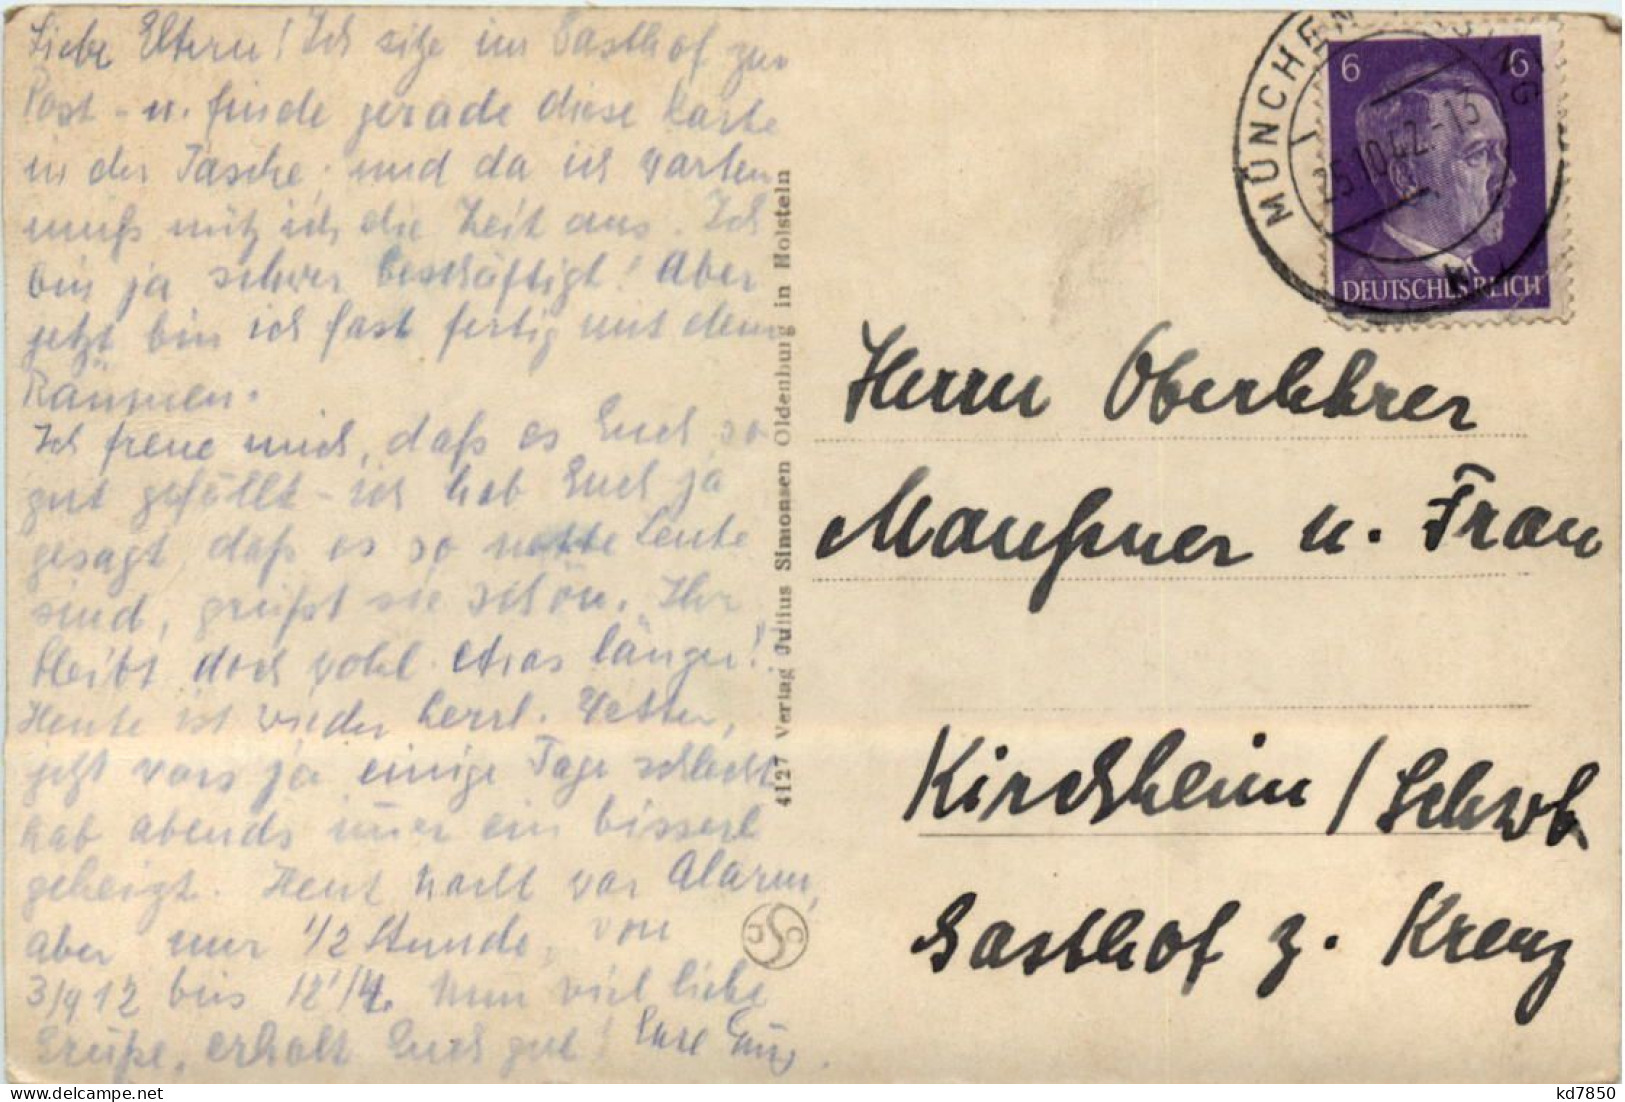 Liebe Eltern! Ich sitze im Gasthof zur
Post - u. finde gerade diese Karte
in der Tasche, und da ich warten
muß nütz ich die Zeit aus. Ich
bin ja schwer beschäftigt! Aber
jetzt bin ich fast fertig mit dem
Räumen.
Ich freue mich, daß es Euch so
gut gefällt - ich hab Euch ja
gesagt, daß es so nette Leute
sind, grüßt sie schön. Ihr
bleibt doch wohl etwas länger!
Heute ist wieder herrl. Wetter,
jetzt wars ja einige Tage schlecht
hab abends immer ein bisserl
geheizt. Heut Nacht war Alarm,
aber nur 1/2 Stunde, von
3/4 12 bis 12 1/4. Nun viel liebe
Grüße, erholt Euch gut! Eure
4127 Verlag Julius Simonsen Oldenburg in Holstein
MÜNCHEN
25.10.42.-13
6 6
DEUTSCHES REICH
Herrn Oberlehrer
Maußner u. Frau
Kirchheim / Schwb
Gasthof z. Kreuz
www.delcampe.net
kd7850